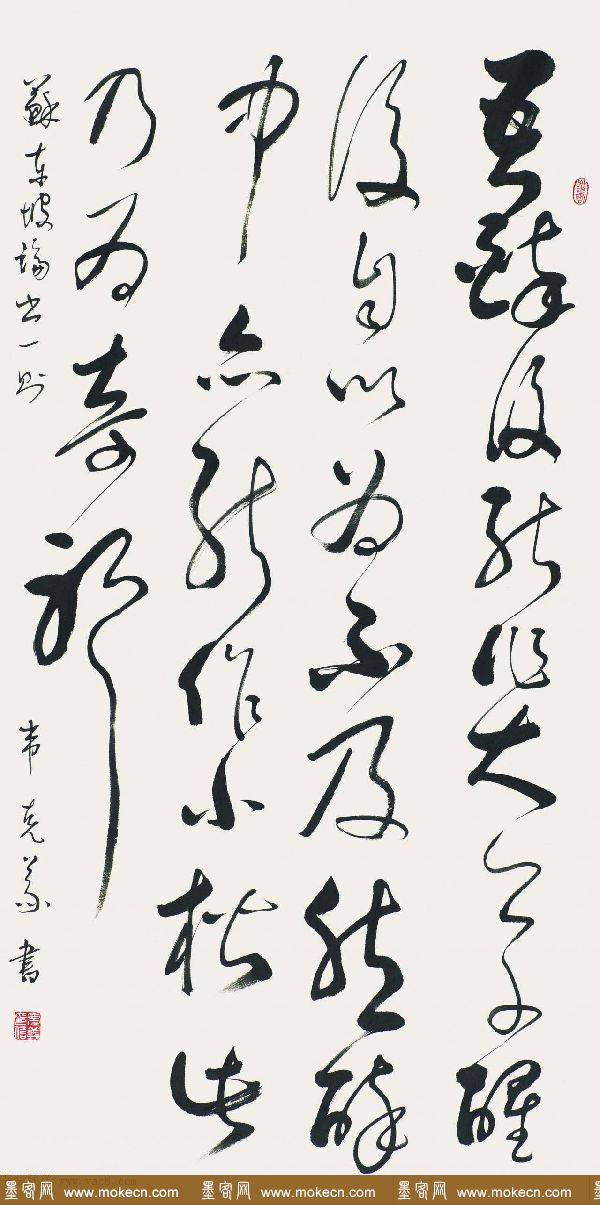 吾醉後能作大草醒
後自以為不及然醉
中亦能作小楷此
乃為奇耳
蘇東坡論書一則 韋克義書
墨客网 www.mokecn.com 墨客网 www.mokecn.com 墨客网 www.mokecn.com